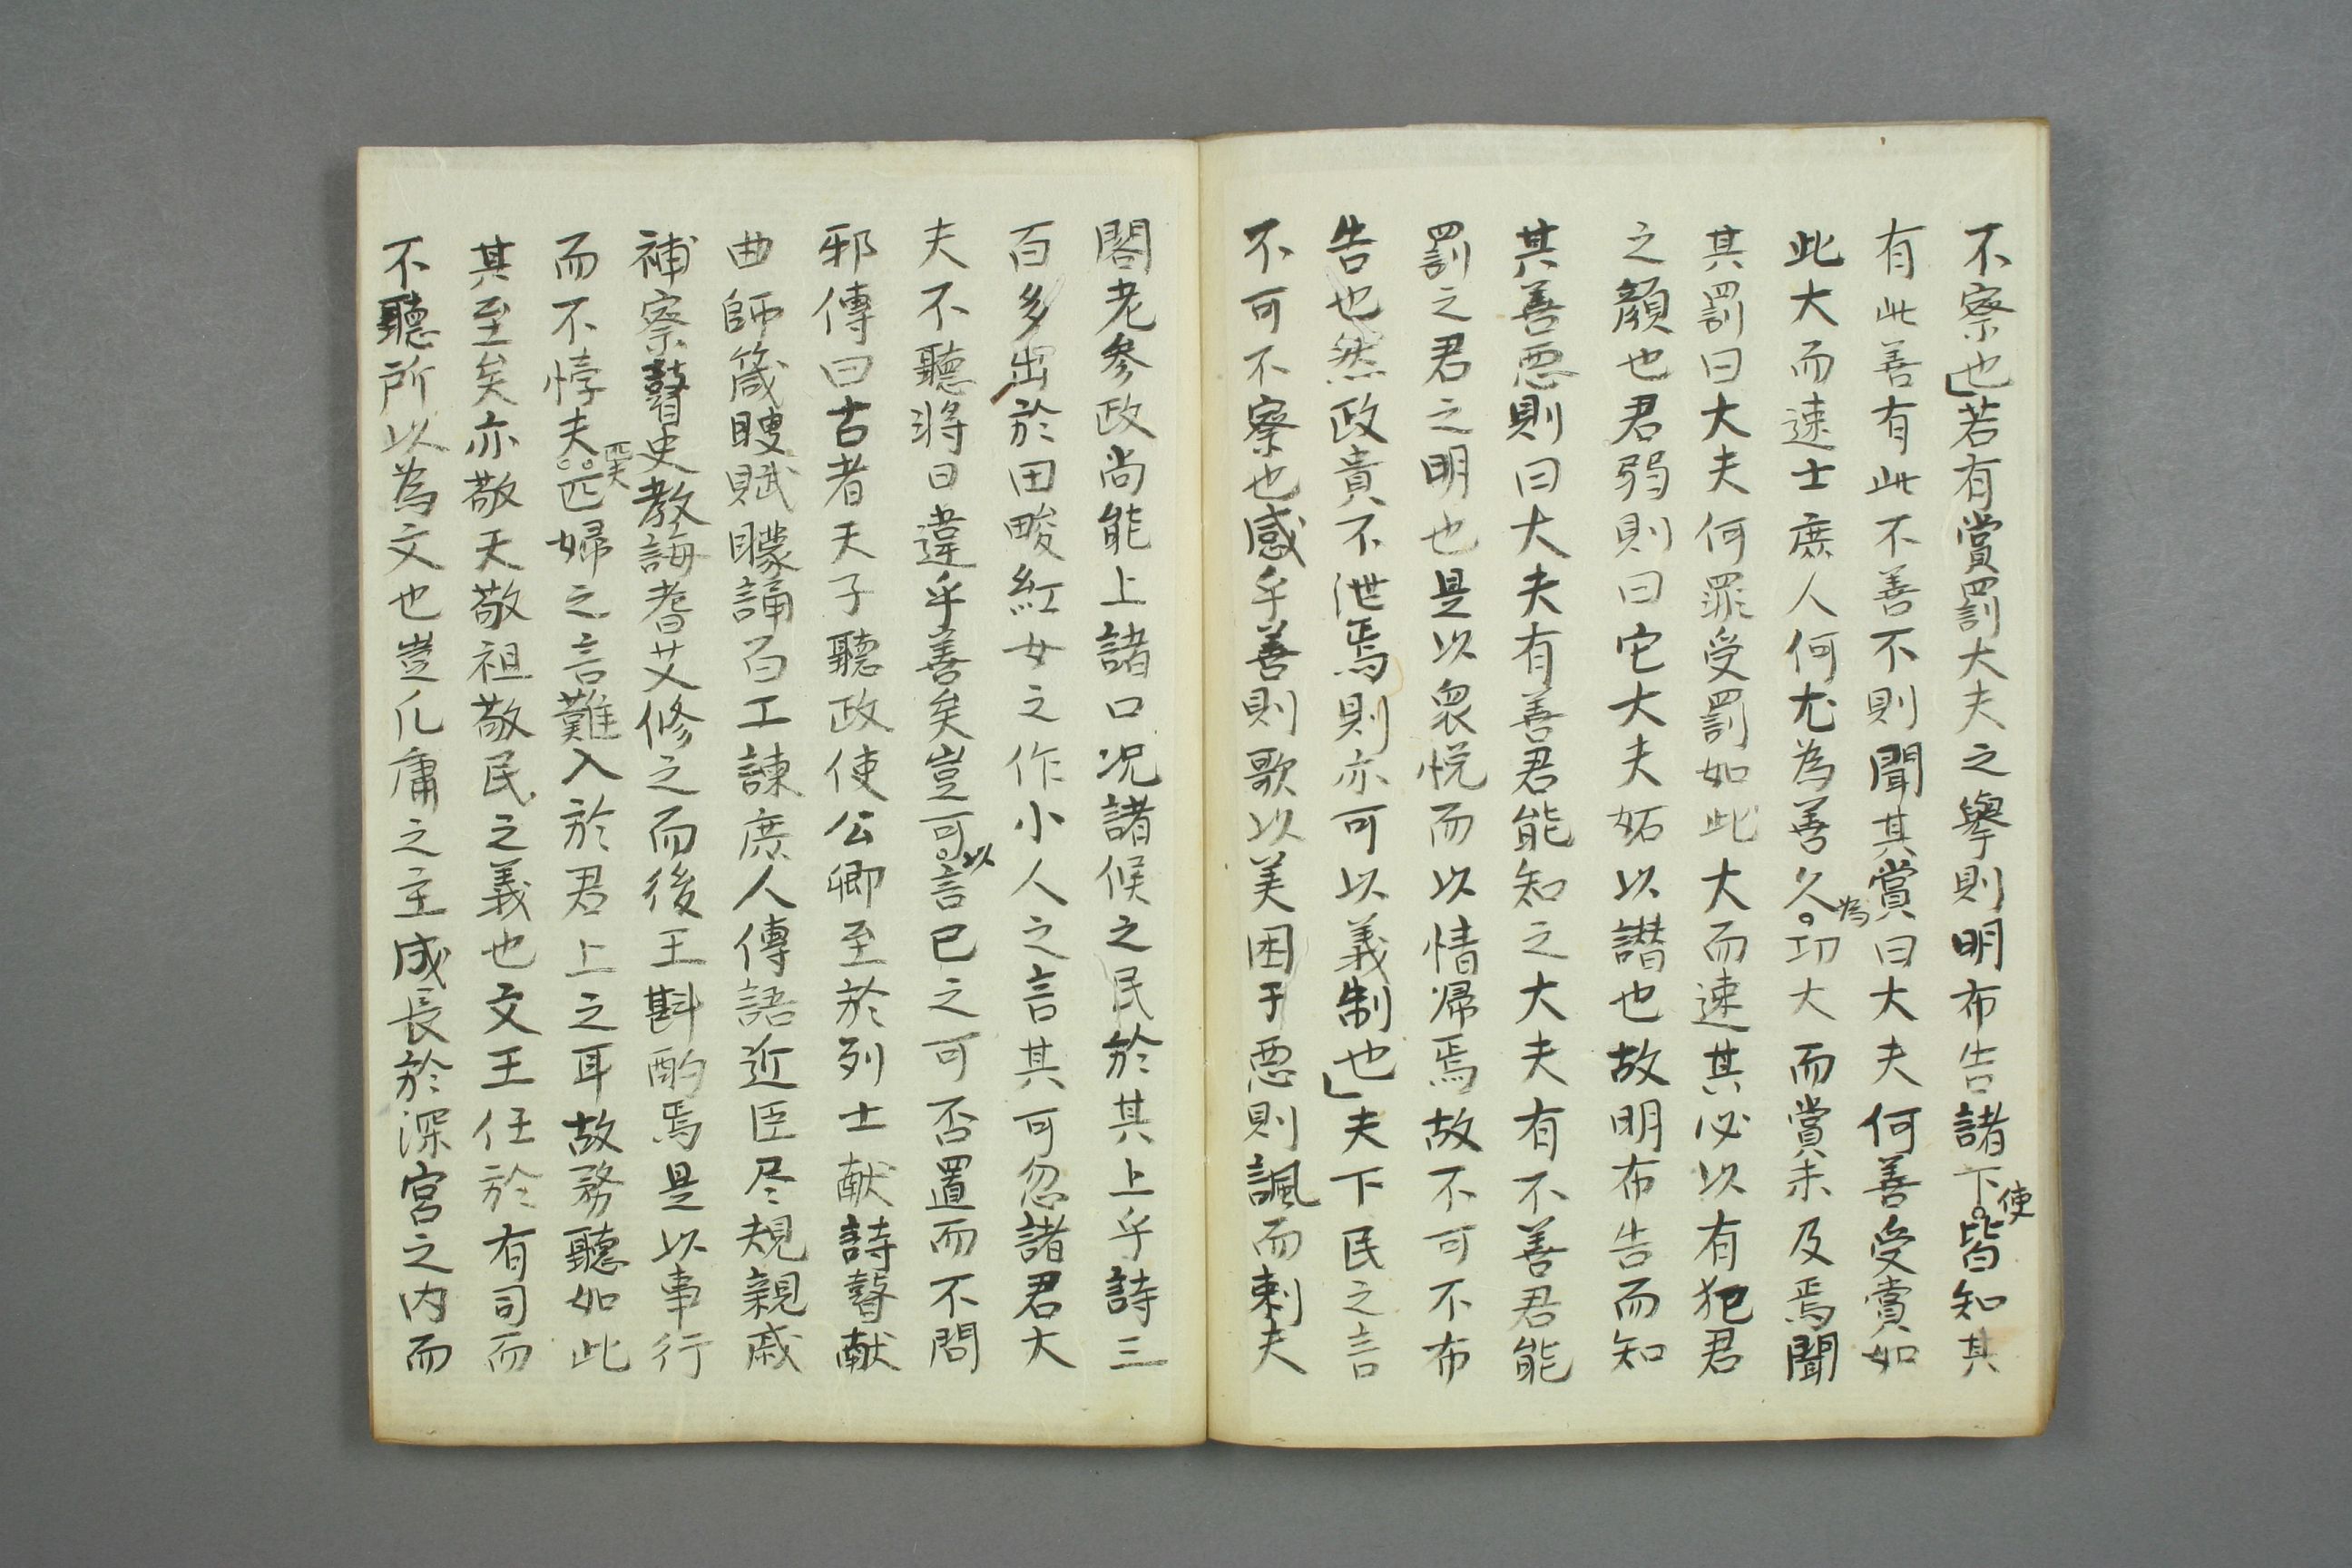 不察也」若有賞罰大夫之擧則明布告諸下使皆知其
有此善有此不善不則聞其賞曰大夫何善受賞如
此大而速士庶人何尤為善久為功大而賞未及焉聞
其罰曰大夫何罪受罰如此大而速其必以有犯君
之顏也君弱則曰它大夫妬以譖也故明布告而知
其善惡則曰大夫有善君能知之大夫有不善君能
罰之君之明也是以衆悅而以情帰焉故不可不布
告也然政貴不泄焉則亦可以義制也」夫下民之言
不可不察也感乎善則歌以美困于惡則諷而刺夫
閣老参政尚能上諸口况諸候之民於其上乎詩三
百多出於田畯紅女之作小人之言其可忽諸君大
夫不聽將曰違乎善矣豈可以言已之可否置而不問
邪傳曰古者天子聽政使公卿至於列士献詩瞽献
曲師箴瞍賦矇誦百工諫庶人傳語近臣尽規親戚
補察瞽史教誨耆艾修之而後王斟酌焉是以事行
而不悖夫匹夫匹婦之言難入於君上之耳故務聽如此
其至矣亦敬天敬祖敬民之義也文王任於有司而
不聽所以為文也豈凡庸之主成長於深宮之内而